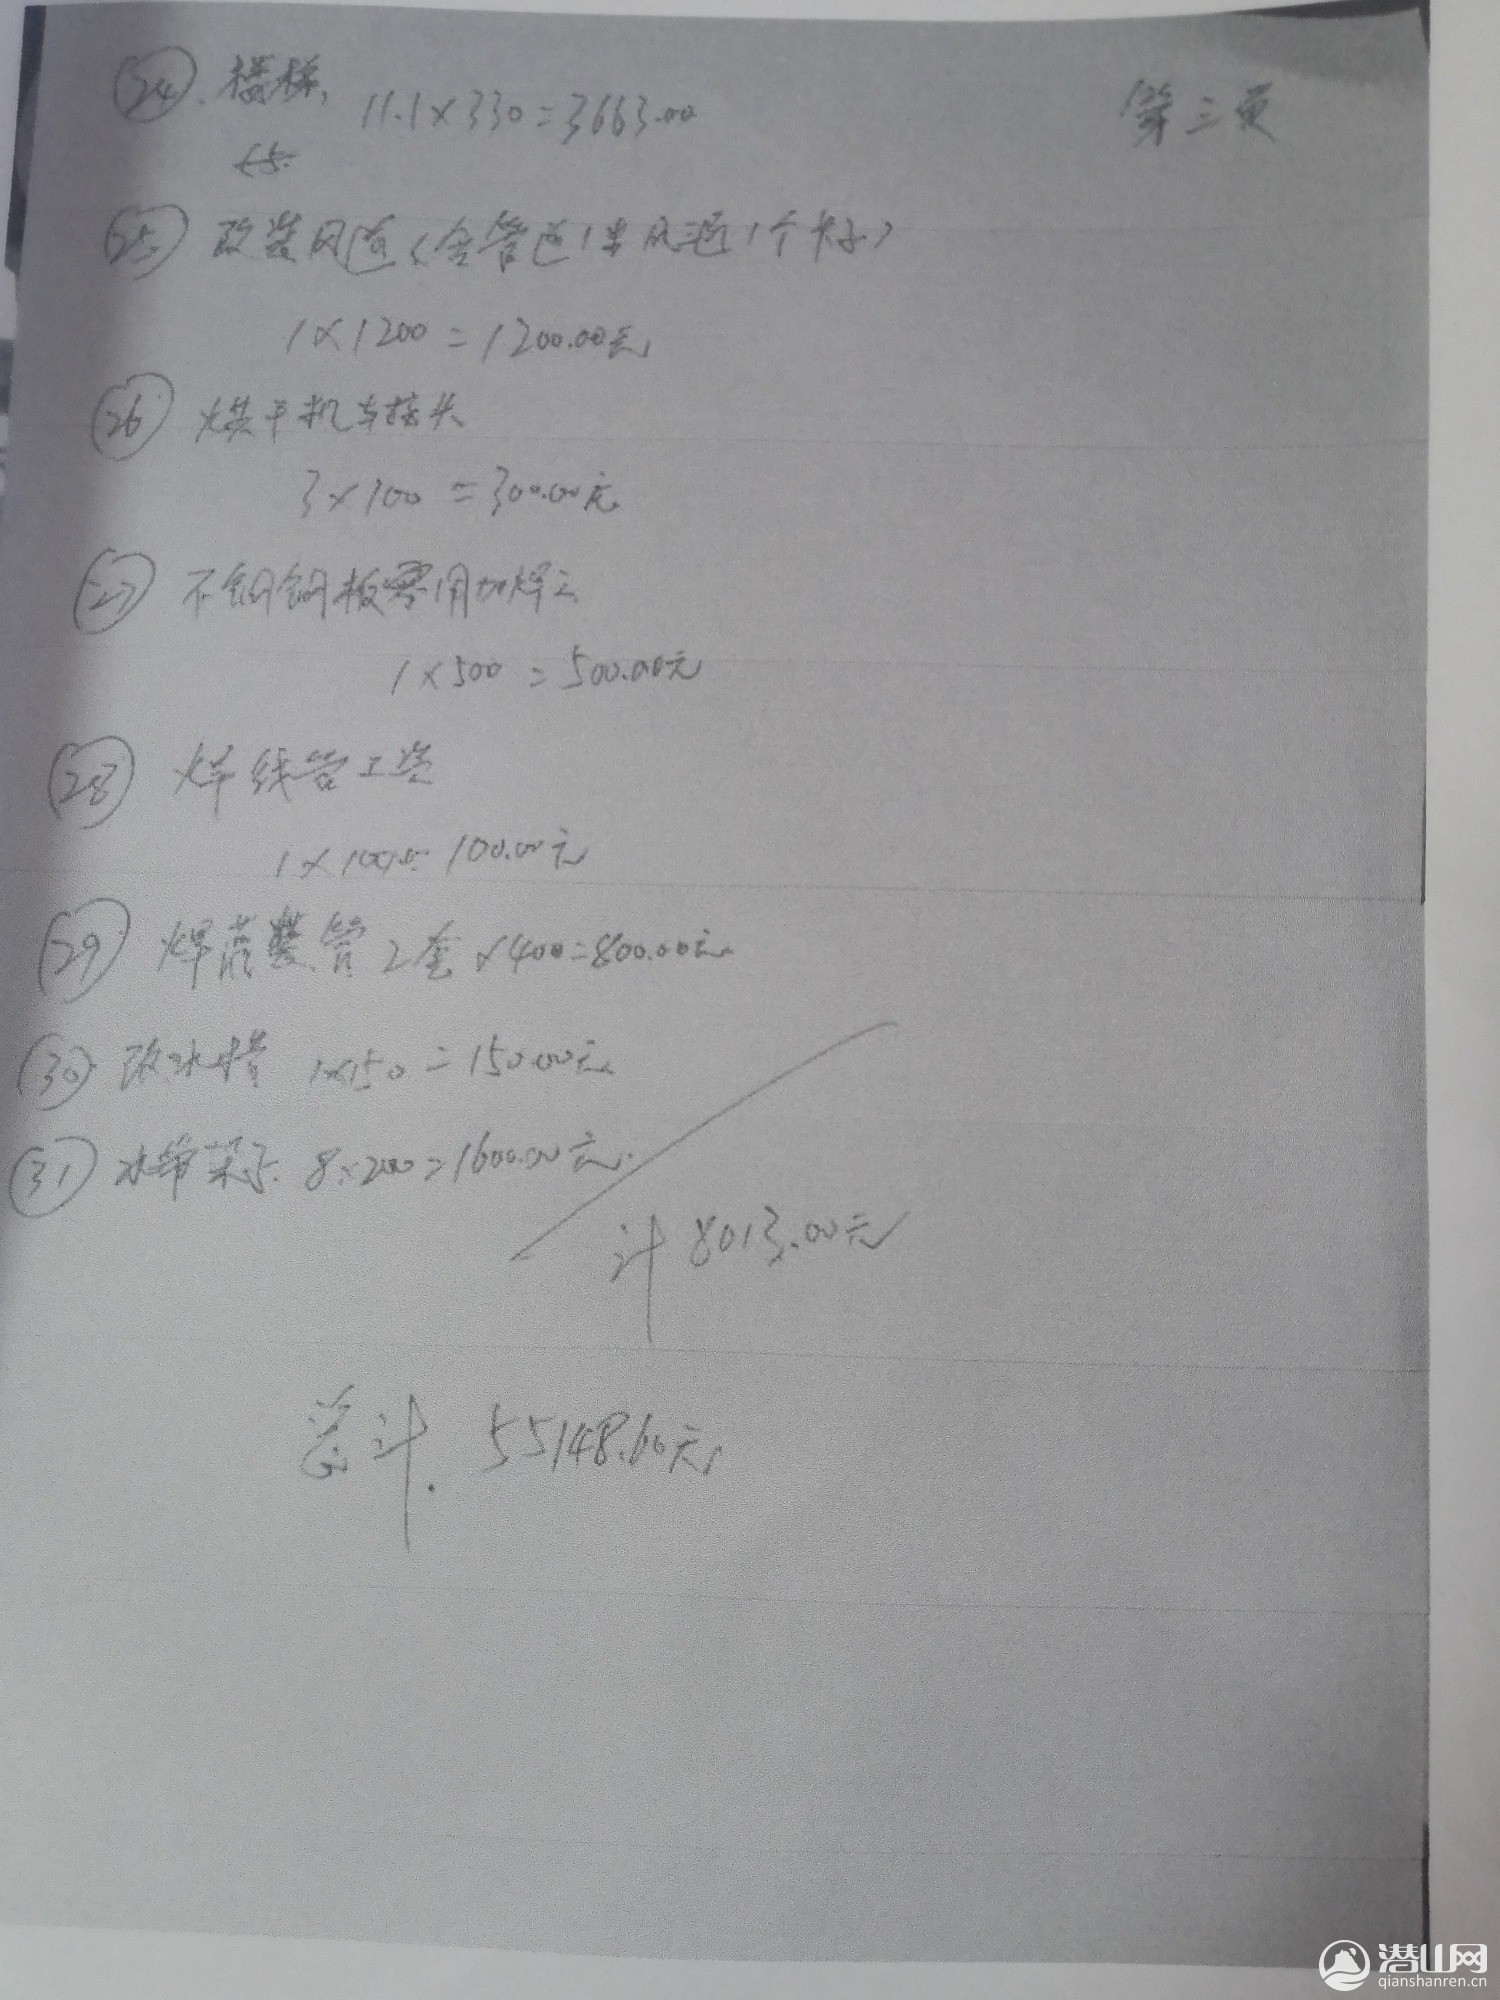 ㉔. 楼梯, 11.1×330=3663.00
第三页
㉕ 改装风道(含管道1米风道1个卡子)
1×1200=1200.00元
㉖ 烘干机专接头
3×100=300.00元
㉗ 不钢钢板零用加焊工
1×500=500.00元
㉘ 焊线管工资
1×100=100.00元
㉙ 焊蒸管2套×400=800.00元
㉚ 改水槽 1×150=150.00元
㉛ 水箱架子. 8×200=1600.00元.
计8013.00元
总计. 55148.60元
潜山网
qianshanren.cn